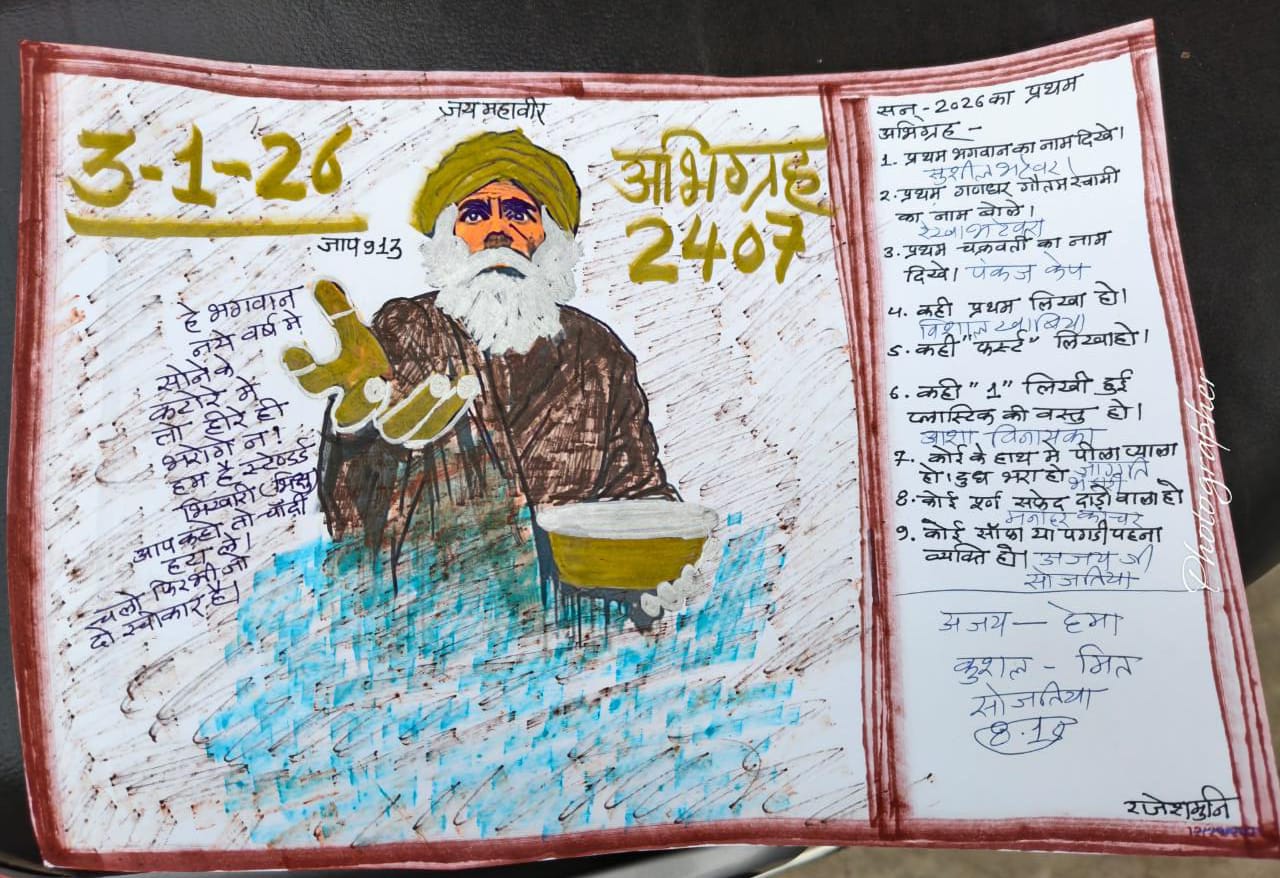 जय महावीर
3-1-26
अभिग्रह
2407
जाप 913
हे भगवान
नये वर्ष मे
सोने के
कटोरे में
तो हीरे ही
भरोगे न।
हम है स्टेण्डर्ड
भिखारी (भिक्षु)
आप कहो तो चाँदी
हटा ले।
चलो फिर भी जो
दो स्वीकार है।
सन्-2026का प्रथम
अभिग्रह -
1. प्रथम भगवान का नाम दिखे।
सुशील भटेवरा
2. प्रथम गणधर गौतम स्वामी
का नाम बोले।
रेखा भटेवरा
3. प्रथम चक्रवर्ती का नाम
दिखे। पंकज
4. कही प्रथम लिखा हो।
विशाल
5. कही "फर्स्ट" लिखा हो।
6. कही "1" लिखी हुई
प्लास्टिक की वस्तु हो।
आशा
7. कोई के हाथ मे पीला प्याला
हो। दुध भरा हो
8. कोई पूर्ण सफेद दाढ़ी वाला हो
9. कोई साँफा या पगडी पहना
व्यक्ति हो। अजय जी
सोजतिया
अजय - हेमा
कुशल - मित
सोजतिया
8.18
राजेशमुनि
Photographer